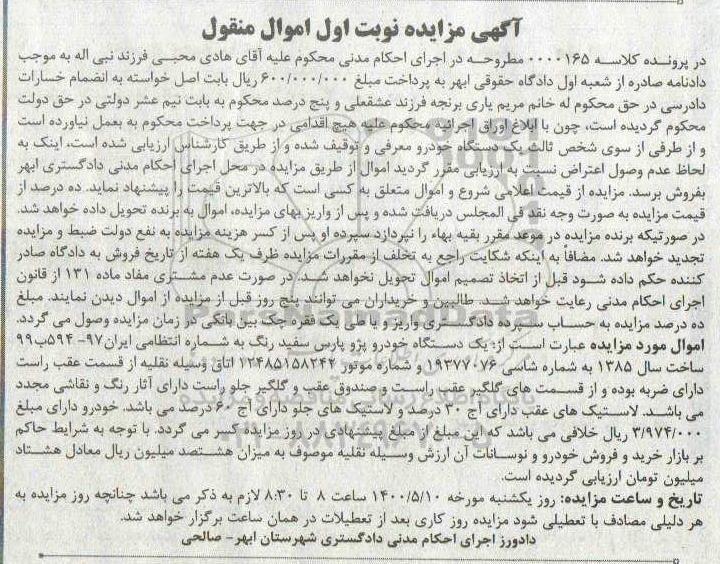 آگهی مزایده نوبت اول اموال منقول
در پرونده کلاسه ۰۰۰۰۱۶۵ مطروحه در اجرای احکام مدنی محکوم علیه آقای هادی محبی فرزند نبی اله به موجب
دادنامه صادره از شعبه اول دادگاه حقوقی ابهر به پرداخت مبلغ ۶۰۰/۰۰۰/۰۰۰ ریال بابت اصل خواسته به انضمام خسارات
دادرسی در حق محکوم له خانم مریم یاری برنجه فرزند عشقعلی و پنج درصد محکوم به بابت نیم عشر دولتی در حق دولت
محکوم گردیده است، چون با ابلاغ اوراق اجرائیه محکوم علیه هیچ اقدامی در جهت پرداخت محکوم به بعمل نیاورده است
و از طرفی از سوی شخص ثالث یک دستگاه خودرو معرفی و توقیف شده و از طریق کارشناس ارزیابی شده است، اینک به
لحاظ عدم وصول اعتراض نسبت به ارزیابی مقرر گردید اموال از طریق مزایده در محل اجرای احکام مدنی دادگستری ابهر
بفروش برسد. مزایده از قیمت اعلامی شروع و اموال متعلق به کسی است که بالاترین قیمت را پیشنهاد نماید. ده درصد از
قیمت مزایده به صورت وجه نقد فی المجلس دریافت شده و پس از واریز بهای مزایده، اموال به برنده تحویل داده خواهد شد.
در صورتیکه برنده مزایده در موعد مقرر بقیه بهاء را نپردازد سپرده او پس از کسر هزینه مزایده به نفع دولت ضبط و مزایده
تجدید خواهد شد. مضافاً به اینکه شکایت راجع به تخلف از مقررات مزایده ظرف یک هفته از تاریخ فروش به دادگاه صادر
کننده حکم داده شود قبل از اتخاذ تصمیم اموال تحویل نخواهد شد. در صورت عدم مشتری مفاد ماده ۱۳۱ از قانون
اجرای احکام مدنی رعایت خواهد شد. طالبین و خریداران می توانند پنج روز قبل از مزایده از اموال دیدن نمایند. مبلغ
ده درصد مزایده به حساب سپرده دادگستری واریز و یا طی یک فقره چک بین بانکی در زمان مزایده وصول می گردد.
اموال مورد مزایده عبارت است از: یک دستگاه خودرو پژو پارس سفید رنگ به شماره انتظامی ایران۹۷- ۵۹۴ب۹۹
ساخت سال ۱۳۸۵ به شماره شاسی ۱۹۳۷۷۰۷۶ و شماره موتور ۱۲۴۸۵۱۵۸۲۴۲ اتاق وسیله نقلیه از قسمت عقب راست
دارای ضربه بوده و از قسمت های گلگیر عقب راست و صندوق عقب و گلگیر جلو راست دارای آثار رنگ و نقاشی مجدد
می باشد. لاستیک های عقب دارای آج ۳۰ درصد و لاستیک های جلو دارای آج ۶۰ درصد می باشد. خودرو دارای مبلغ
۳/۹۷۴/۰۰۰ ریال خلافی می باشد که این مبلغ از مبلغ پیشنهادی در روز مزایده کسر می گردد. با توجه به شرایط حاکم
بر بازار خرید و فروش خودرو و نوسانات آن ارزش وسیله نقلیه موصوف به میزان هشتصد میلیون ریال معادل هشتاد
میلیون تومان ارزیابی گردیده است.
تاریخ و ساعت مزایده: روز یکشنبه مورخه ۱۴۰۰/۵/۱۰ ساعت ۸ تا ۸:۳۰ لازم به ذکر می باشد چنانچه روز مزایده به
هر دلیلی مصادف با تعطیلی شود مزایده روز کاری بعد از تعطیلات در همان ساعت برگزار خواهد شد.
دادورز اجرای احکام مدنی دادگستری شهرستان ابهر- صالحی
ParsNamadData